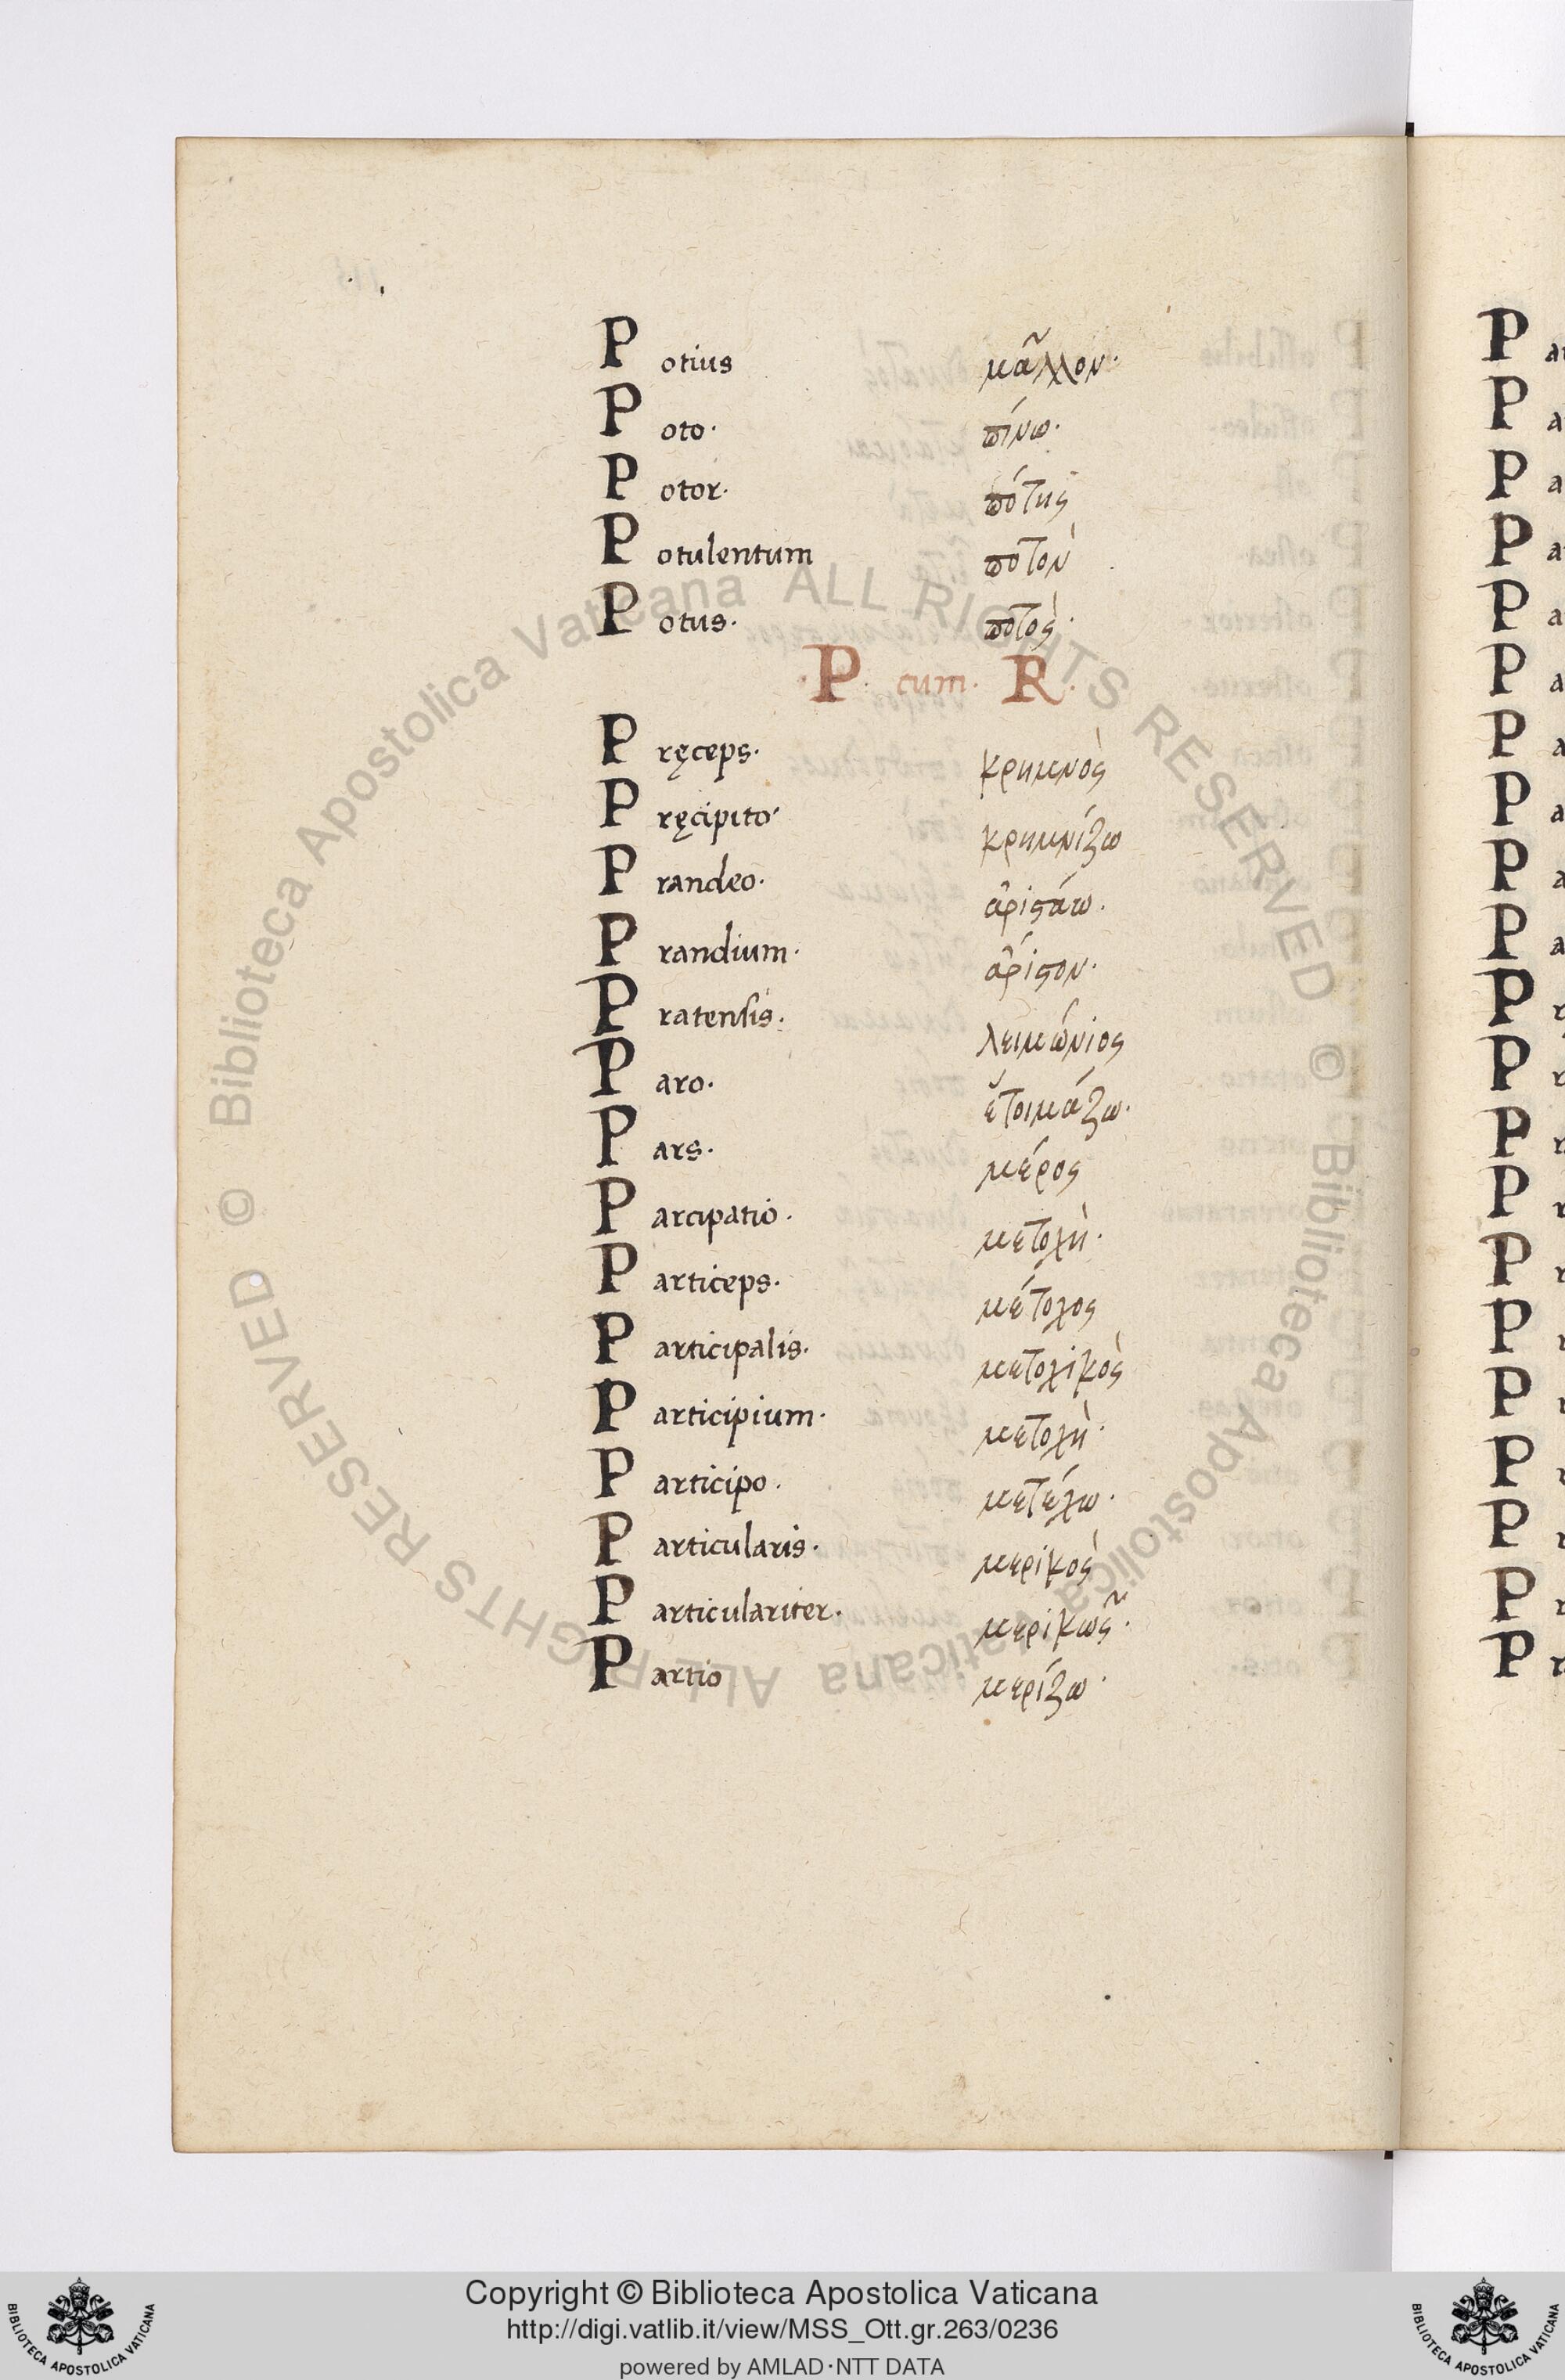 Potius μᾶλλον·
Poto· πίνω·
Potor· πότης
Potulentum ποτὸν
Potus· ποτὸς·
·P· cum· R·
Pręceps· κρημνὸς
Pręcipito· κρημνίζω
Prandeo· ἀριςάω·
Prandium· ἄριςον·
Pratensis· λειμώνιος
Paro· ἑτοιμάζω·
Pars· μέρος
Parcipatio· μετοχὴ·
Particeps· μέτοχος
Participalis· μετοχικὸς
Participium· μετοχὴ·
Participo· μετέχω·
Particularis· μερικὸς
Particulariter· μερικῶς·
Partio μερίζω·
© Biblioteca Apostolica Vaticana ALL RIGHTS RESERVED © Biblioteca Apostolica Vaticana ALL RIGHTS RESERVED
Copyright © Biblioteca Apostolica Vaticana
http://digi.vatlib.it/view/MSS_Ott.gr.263/0236
powered by AMLAD·NTT DATA
BIBLIOTECA APOSTOLICA VATICANA
BIBLIOTECA APOSTOLICA VATICANA